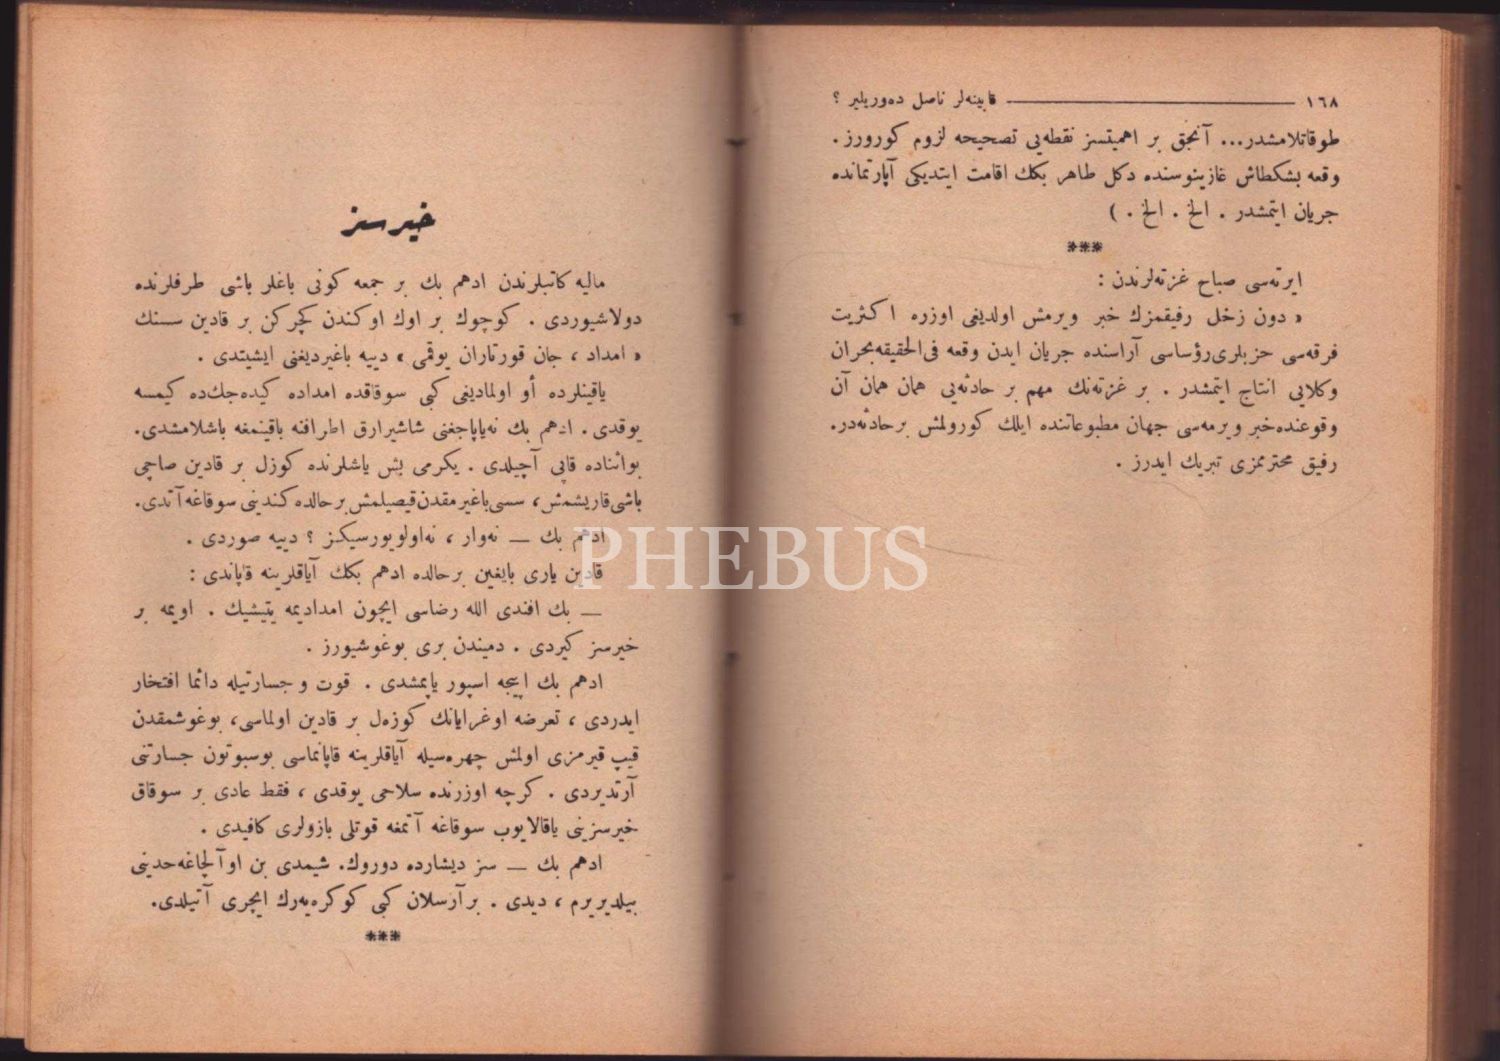 ١٦٨ ــــــــــ قابینه‌لر ناصل ده‌وریلیر ؟
طوقاتلامشدر... آنجق بر اهمیتسز نقطه‌یی تصحیحه لزوم کورورز .
وقعه بشکطاش غازینوسنده دکل طاهر بکك اقامت ایتدیکی آپارتمانده
جریان ایتمشدر . الخ . الخ . )
***
ایرته‌سی صباح غزته‌لرندن :
« دون زخل رفیقمزك خبر ویرمش اولدیغی اوزره اکثریت
فرقه‌سی حزبلری رؤساسی آراسنده جریان ایدن وقعه فی‌الحقیقه بحران
وکلایی انتاج ایتمشدر . بر غزته‌نك مهم بر حادثه‌یی همان همان آن
وقوعنده خبر ویرمه‌سی جهان مطبوعاتنده ایلك کورولمش بر حادثه‌در.
رفیق محترممزی تبریك ایدرز .
خیرسز
مالیه کاتبلرندن ادهم بك بر جمعه کونی باغلر باشی طرفلرنده
دولاشیوردی . کوچوك بر اوك اوکندن کچرکن بر قادین سسنك
« امداد ، جان قورتاران یوقمی » دییه باغیردیغنی ایشیتدی .
یاقینلرده أو اولمادیغی کبی سوقاقده امداده کیده‌جك‌ده کیمسه
یوقدی . ادهم بك نه‌یاپاجغنی شاشیرارق اطرافنه باقینمغه باشلامشدی.
بواثناده قاپی آچیلدی . یکرمی بش یاشلرنده کوزل بر قادین صاچی
باشی قاریشمش، سسی باغیرمقدن قیصیلمش بر حالده کندینی سوقاغه آتدی.
ادهم بك ــ نه‌وار ، نه‌اولویورسیکز ؟ دییه صوردی .
قادین یاری بایغین برحالده ادهم بکك آیاقلرینه قاپاندی :
ــ بك افندی الله رضاسی ایچون امدادیمه یتیشیك . اویمه بر
خیرسز کیردی . دمیندن بری بوغوشیورز .
ادهم بك اییجه اسپور یاپمشدی . قوت و جسارتیله دائما افتخار
ایدردی ، تعرضه اوغرایانك کوزه‌ل بر قادین اولماسی، بوغوشمقدن
قیپ قیرمزی اولمش چهره‌سیله آیاقلرینه قاپانماسی بوسبوتون جسارتنی
آرتدیردی . کرچه اوزرنده سلاحی یوقدی ، فقط عادی بر سوقاق
خیرسزینی یاقالایوب سوقاغه آتمغه قوتلی بازولری کافیدی .
ادهم بك ــ سز دیشارده دوروك. شیمدی بن اوآلچاغه حدینی
بیلدیریرم ، دیدی . برآرسلان کبی کوکره‌یه‌رك ایچری آتیلدی.
***
PHEBUS